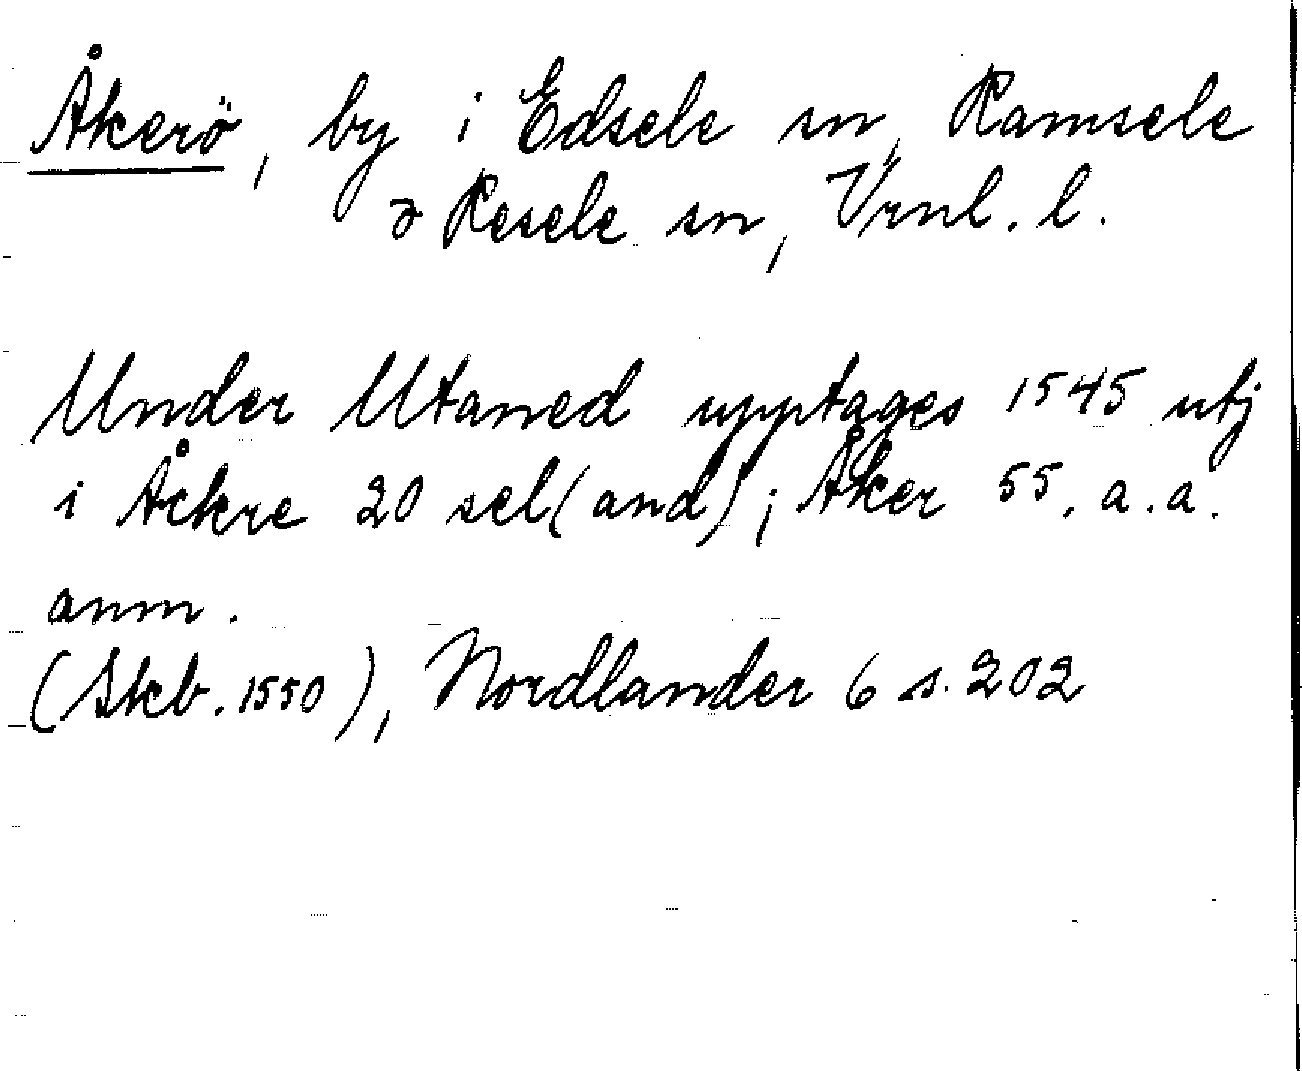 Åkerö, by i Edsele sn, Ramsele
o Resele sn, Vrnl. l.
Under Utaned upptages 1545 utj
i Åckre 20 sel(and); Åker 55. a.a.
anm.
(Skb. 1550), Nordlander 6 s. 202